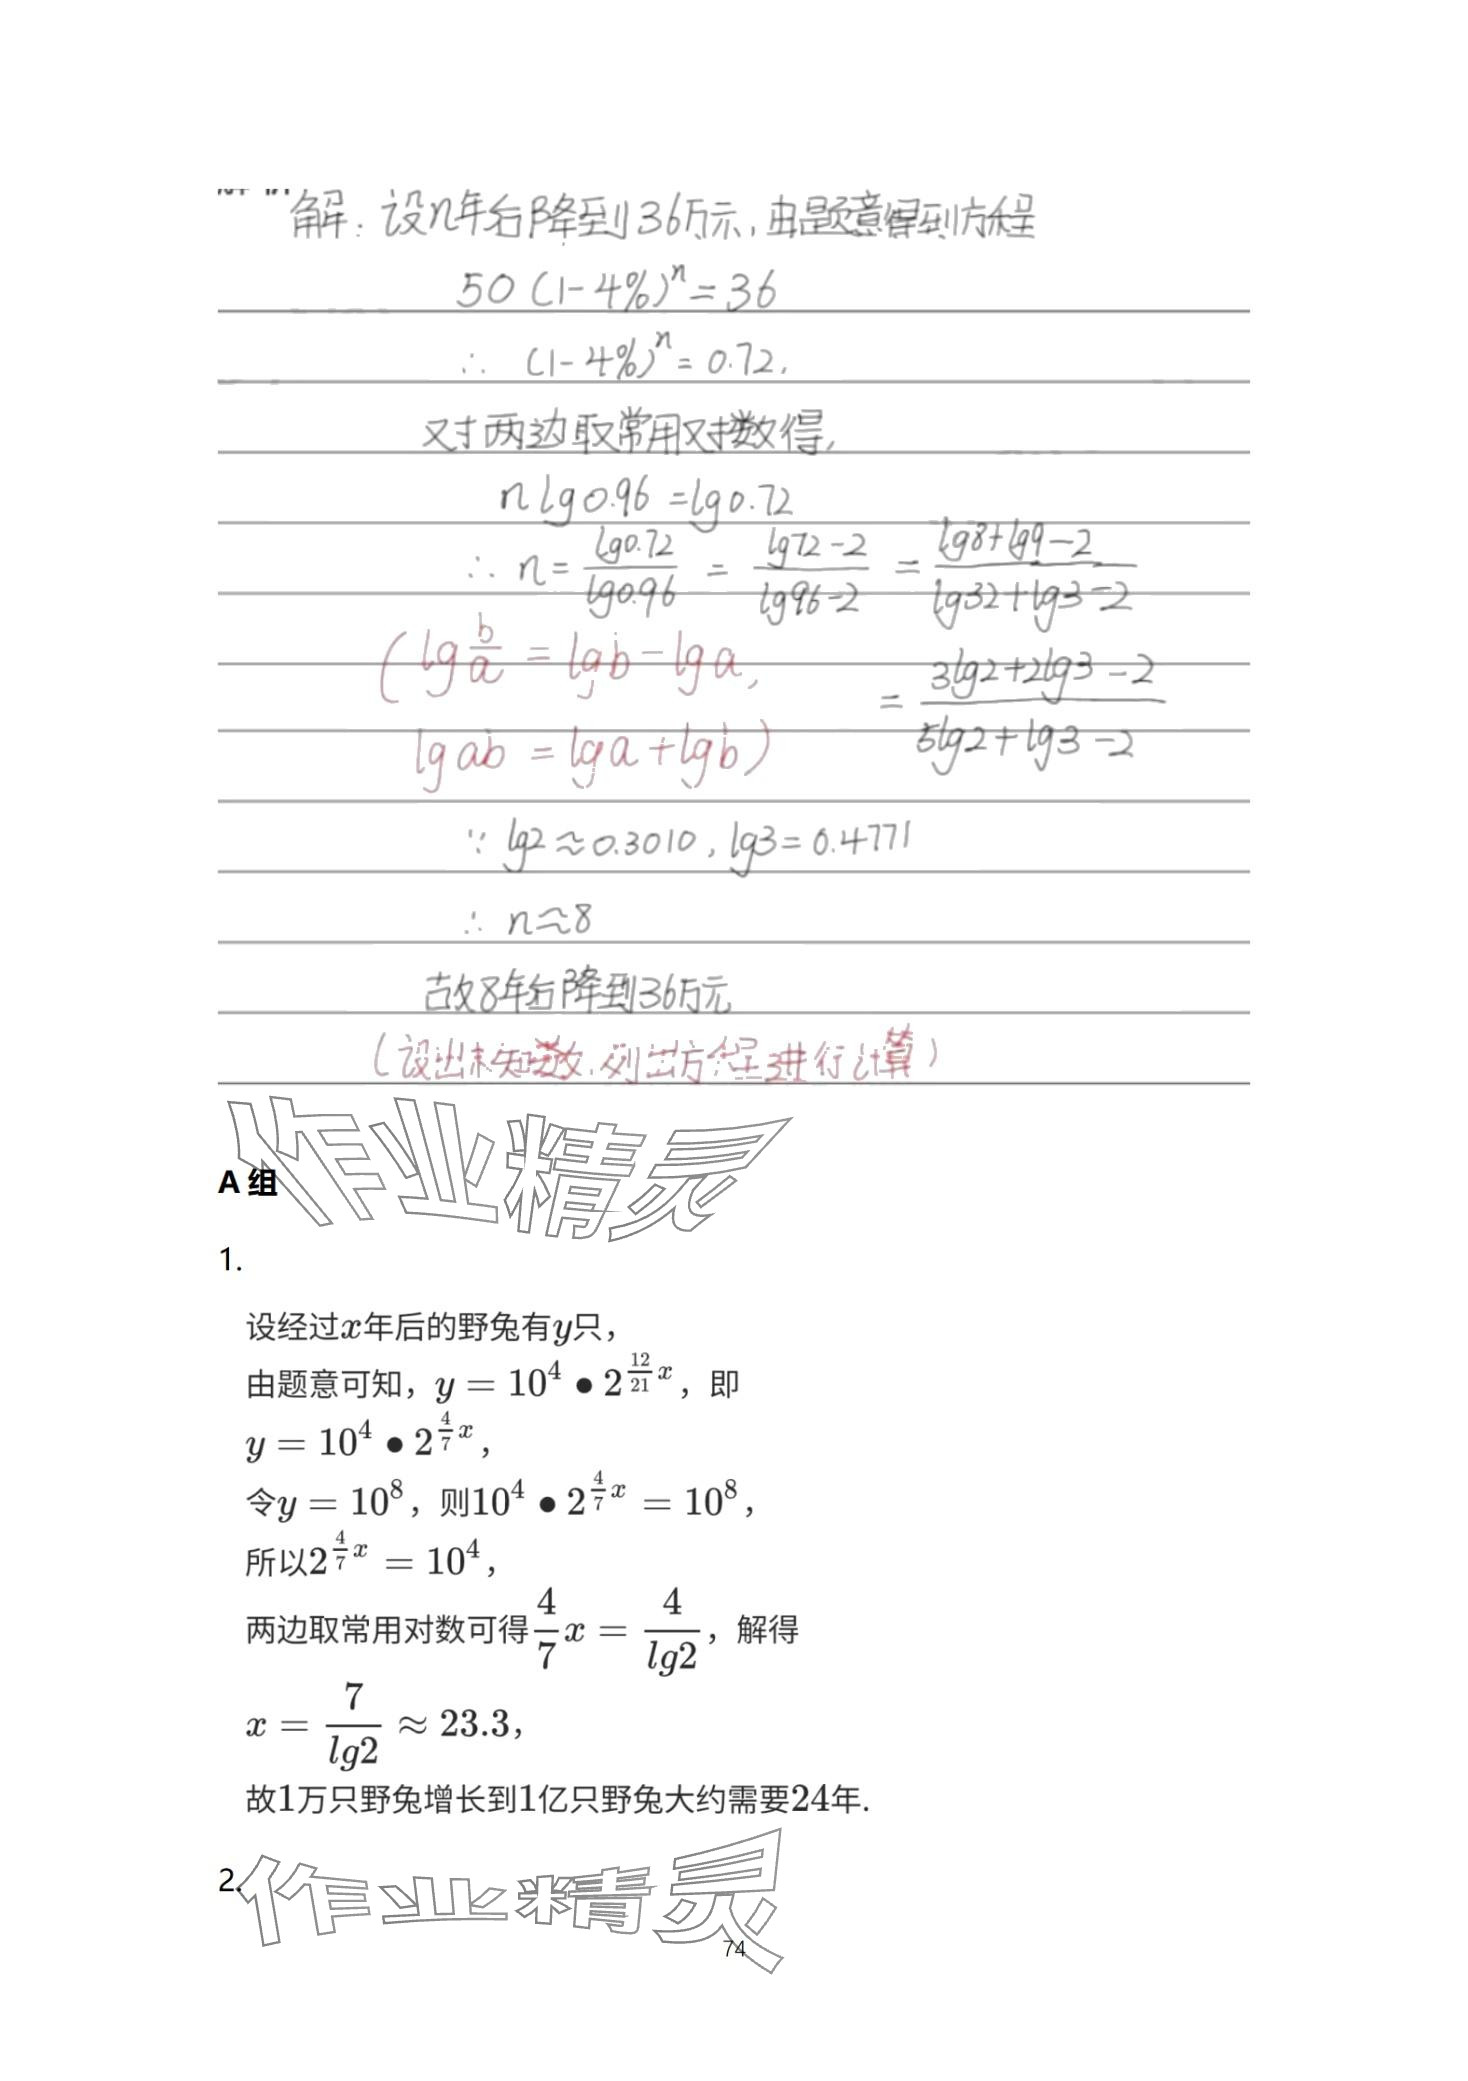 解：设n年后降到36万示，由题意得到方程
50(1-4%)^n=36
∴ (1-4%)^n=0.72，
对两边取常用对数得，
n lg0.96=lg0.72
∴ n=lg0.72/lg0.96 = (lg72-2)/(lg96-2) = (lg8+lg9-2)/(lg32+lg3-2)
(lg b/a = lgb-lga,
= (3lg2+2lg3-2)/(5lg2+lg3-2)
lg ab = lga+lgb)
∵ lg2≈0.3010，lg3=0.4771
∴ n≈8
故8年后降到36万元
(设出未知数，列出方程进行计算)
作业精灵
A 组
1.
设经过x年后的野兔有y只，
由题意可知，y = 10^4 • 2^(12/21 x)，即
y = 10^4 • 2^(4/7 x)，
令y = 10^8，则10^4 • 2^(4/7 x) = 10^8，
所以2^(4/7 x) = 10^4，
两边取常用对数可得4/7 x = 4/lg2，解得
x = 7/lg2 ≈ 23.3，
故1万只野兔增长到1亿只野兔大约需要24年.
2.
作业精灵
74